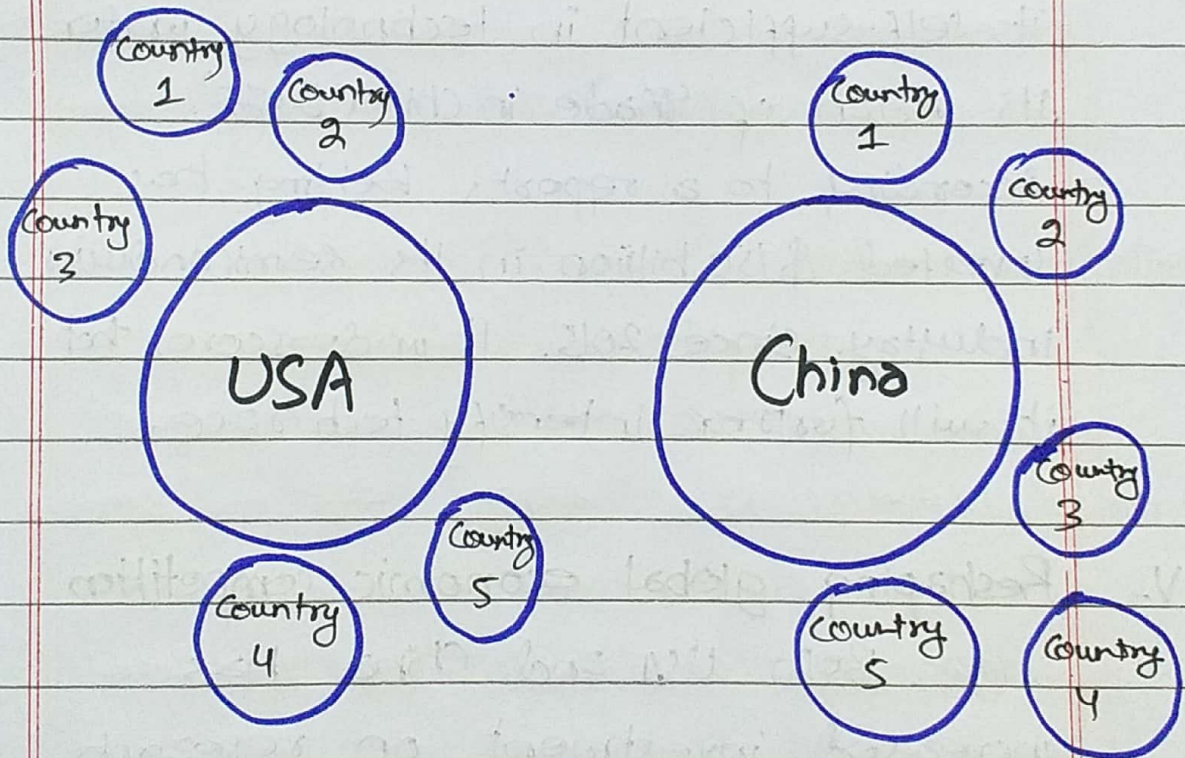 Country
1
Country
2
Country
3
USA
Country
4
Country
5
Country
1
Country
2
China
Country
3
Country
4
Country
5